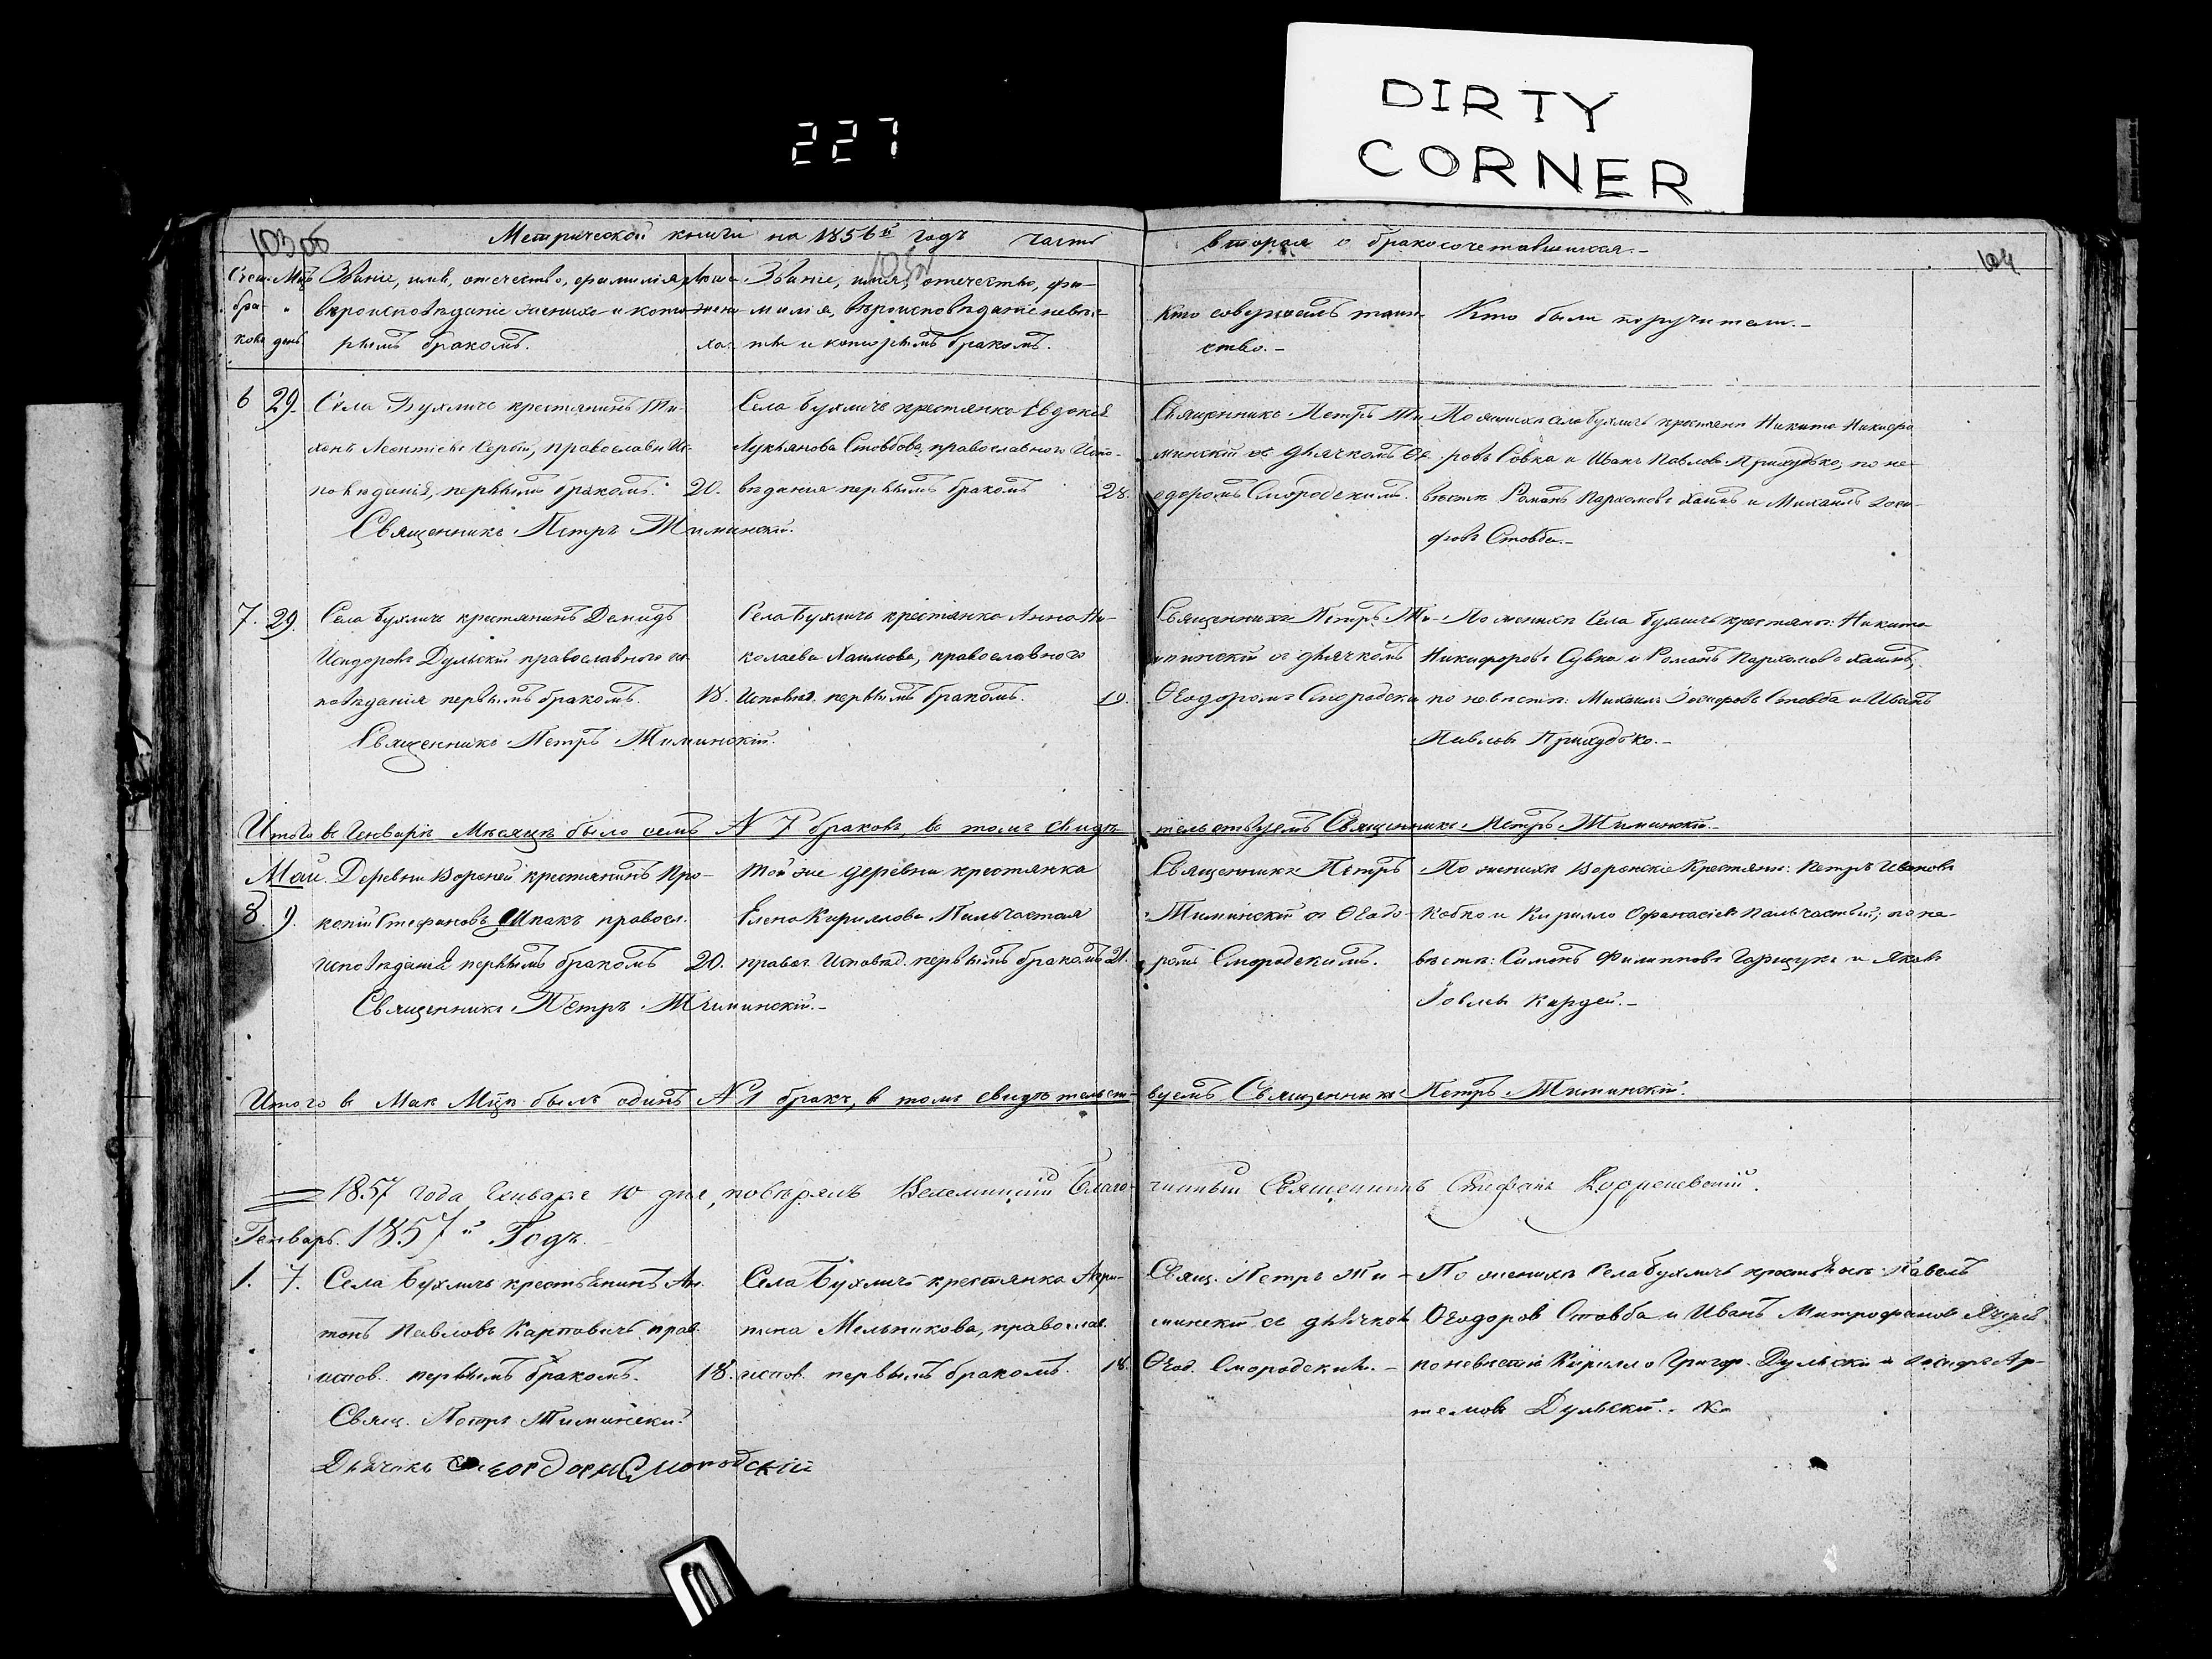 DIRTY
CORNER
227
103об
Метрической книги на 1856й годъ часть вторая о бракосочетавшихся.
104
Счетъ браковъ
Мцъ день
Званіе, имя, отечество, фамилія,
вѣроисповѣданіе жениха и кото-
рымъ бракомъ.
Лѣта жениха
Званіе, имя, отечество, фа-
милія, вѣроисповѣданіе невѣс-
ты и которымъ бракомъ.
Кто совершалъ таин-
ство.
Кто были поручители.
6 29. Села Бухличъ крестянинъ Ти-
хонъ Леонтіевъ Сергій, православн. Ис-
повѣданія, первымъ бракомъ. 20.
Священникъ Петръ Тиминскій.
Села Бухличъ крестянка Евдокія
Лукьянова Стовбова, православного Испо-
вѣданія первымъ бракомъ 28.
Священникъ Петръ Ти-
минскій съ дьячкомъ Ѳе-
одоромъ Смородскимъ.
По женихѣ села Бухличъ крестяни Никита Никифо-
ровъ Совка и Иванъ Павловъ Прихудько, по не-
вѣстѣ Романъ Пархомовъ Хаимъ и Михаилъ Іоси-
фовъ Стовба.
7. 29. Села Бухличъ крестянинъ Демидъ
Исидоровъ Дульскій православного ис-
повѣданія первымъ бракомъ. 18.
Священникъ Петръ Тиминскій.
Села Бухличъ крестянка Анна Ни-
колаева Хаимова, православного
Исповѣд. первымъ бракомъ. 19.
Священникъ Петръ Ти-
минскій съ дьячкомъ
Ѳеодоромъ Смородски
По женихѣ Села Бухличъ крестяни: Никита
Никифоровъ Сувка и Романъ Пархомовъ Хаимъ,
по невѣстѣ: Михаилъ Іосифовъ Стовба и Иванъ
Павловъ Прихудько.
Итого въ Генварѣ Мѣсяцѣ было семь N 7 браковъ, въ томъ свидѣ-
тельствуемъ Священникъ Петръ Тиминскій.
Май. Деревни Вороней крестянинъ Про-
8 9. копій Стефановъ Шпакъ правосл.
исповѣданія первымъ бракомъ 20.
Священникъ Петръ Тиминскій.
Той же деревни крестянка
Елена Кириллова Пальчастая
правос. Исповѣд. первымъ бракомъ 21.
Священникъ Петръ
Тиминскій съ Ѳеодо-
ромъ Смородскимъ.
По женихѣ Воронскіе Крестяни: Петръ Ивановъ
Кобко и Кирилло Офанасіевъ Пальчастый; по не-
вѣстѣ: Симонъ Филипповъ Гарщукъ и Яковъ
Іовлевъ Кардей.
Итого въ Маѣ Мцѣ былъ одинъ N 1 бракъ, въ томъ свидѣтельст-
вуемъ Священникъ Петръ Тиминскій.
1857 года Генваря 10 дня, повѣрялъ Велемицкій Благо-
чинный Священникъ Стефанъ
Генварь. 1857й Годъ
1. 7. Села Бухличъ крестьянинъ Ан-
тонъ Павловъ Карповичъ, прав.
испов. первымъ бракомъ. 18.
Свящ. Петръ Тиминскій
Дьячокъ Ѳеодоръ Смородскій
Села Бухличъ крестянка Агри-
пина Мельникова, православ.
испов. первымъ бракомъ. 18.
Свящ. Петръ Ти-
минскій съ дьячком
Ѳеод. Смородскимъ.
По женихѣ Села Бухличъ крестьяне: Павелъ
Ѳеодоров Стовба и Иванъ Митрофанов
по невѣстѣ Кирилло Григор. Дульскій и Іосифъ Ар-
темовъ Дульскій.